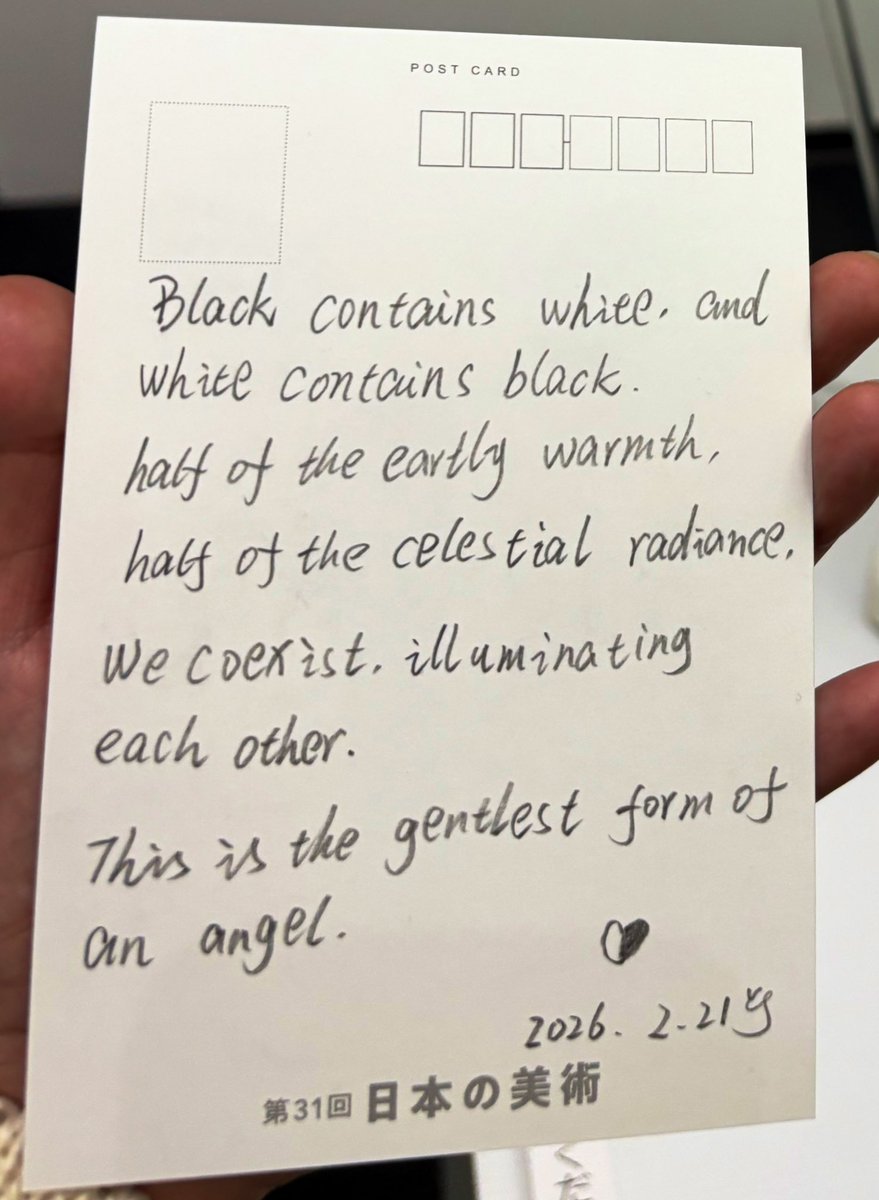 POST CARD
Black contains white, and
white contains black.
half of the eartly warmth,
half of the celestial radiance.
We coexist, illuminating
each other.
This is the gentlest form of
an angel.
2026. 2.21
第31回 日本の美術
くだ